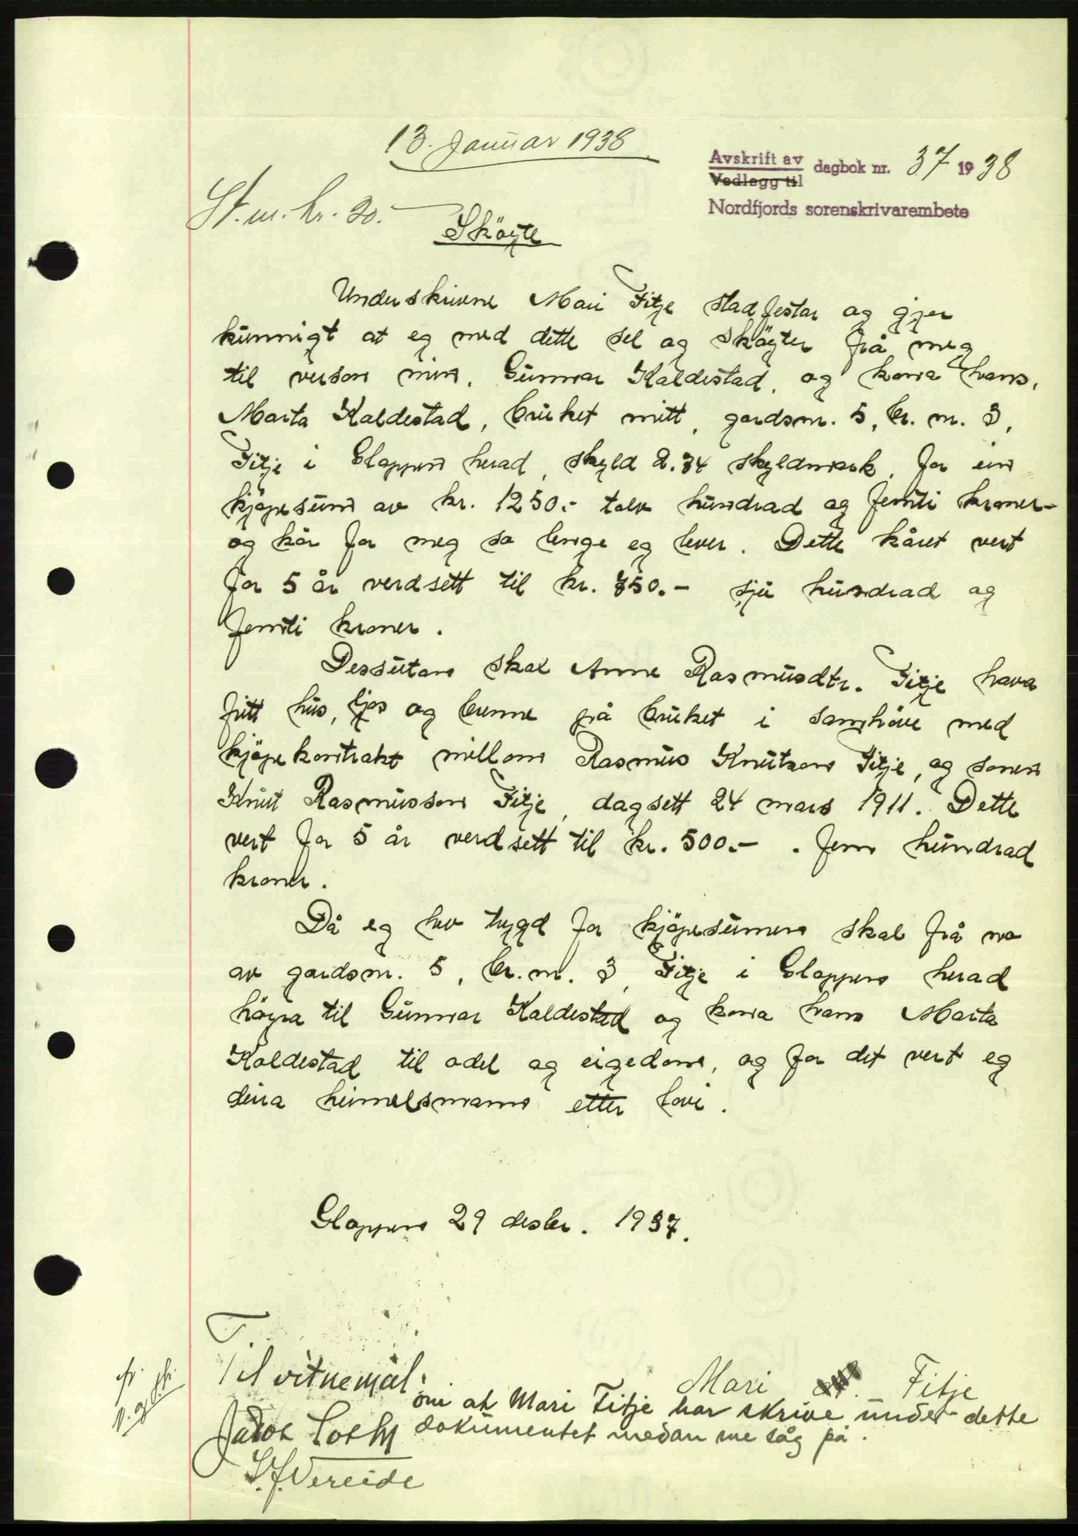 13. Januar 1938
Avskrift av
Vedlegg til
dagbok nr. 37 1938
Nordfjords sorenskrivarembete
St. m. kr. 20.-
Sköyte
Underskrivne Mari Fitje stadfestar og gjer
kunnigt at eg med dette sel og sköyter frå meg
til verson min, Gunnar Kaldestad, og kona hans,
Marta Kaldestad, bruket mitt, gardsnr. 5, br. nr. 3,
Fitje i Gloppen herad, skyld 2.34 skyldmark, for ein
kjöpesum av kr. 1250.- tolv hundrad og femti kroner-
og kår for meg so lenge eg lever. Dette kåret vert
for 5 år verdsett til kr. 750.- sju hundrad og
femti kroner.
Dessutan skal Anne Rasmusdtr. Fitje hava
fritt hus, ljos og brenne på bruket i samhöve med
kjöpekontrakt millom Rasmus Knutson Fitje, og sonen
Knut Rasmusson Fitje, dagsett 24 mars 1911. Dette
vert for 5 år verdsett til kr. 500.- . fem hundrad
kroner.
Då eg hev trygd for kjöpesumen skal frå no
av gardsnr. 5, br. nr. 3, Fitje i Gloppen herad
höyra til Gunnar Kaldestad og kona hans Marta
Kaldestad til odel og eigedom, og for det vert eg
deira heimelsmann etter lovi.
Gloppen 29 desbr. 1937.
Mari Fitje
Til vitnemål:
om at Mari Fitje har skrive under dette
dokumentet medan me såg på.
Jakob Lothe
S. J. Vereide